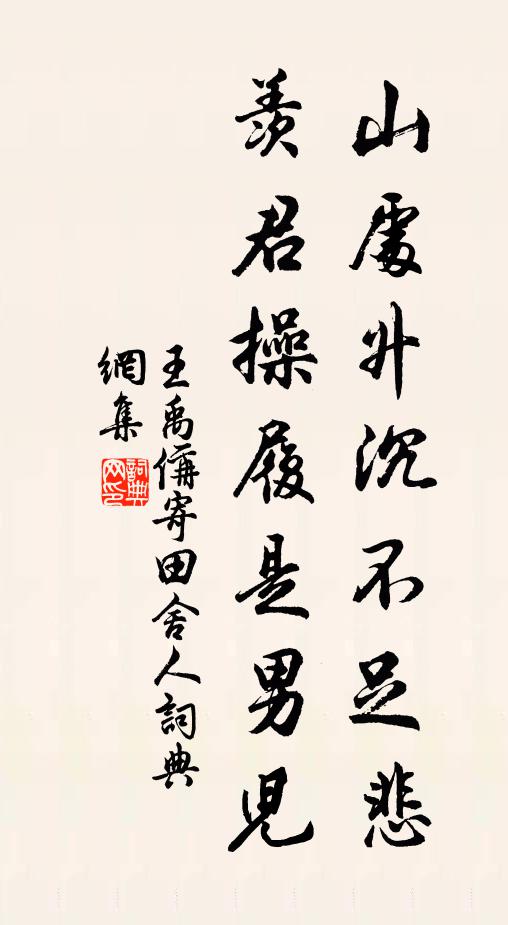 山處升沉不足悲
羨君操履是男兒
王禹偁寄田舍人詞典
網集
詞典
网印